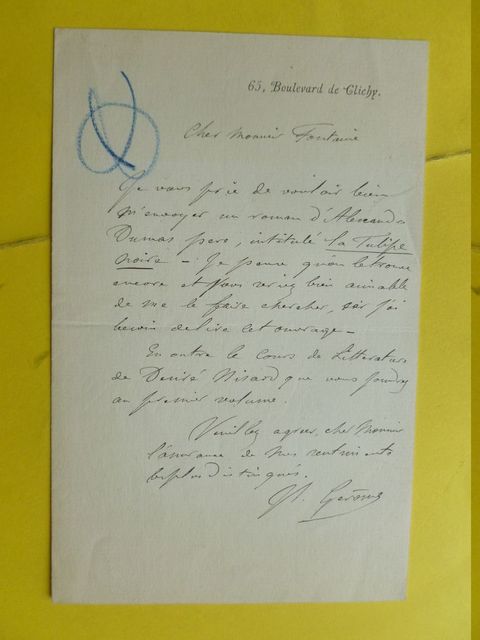 65, Boulevard de Clichy.
Cher Monsieur Fontaine
Je vous prie de vouloir bien
m'envoyer un roman d'Alexandre
Dumas père, intitulé la Tulipe
noire – Je pense qu'on le trouve
encore et vous seriez bien aimable
de me le faire chercher, car j'ai
besoin de lire cet ouvrage –
En outre le cours de Littérature
de Désiré Nisard que vous joindrez
au premier volume.
Veuillez agréer, cher Monsieur
l'assurance de mes sentiments
les plus distingués.
Gérome